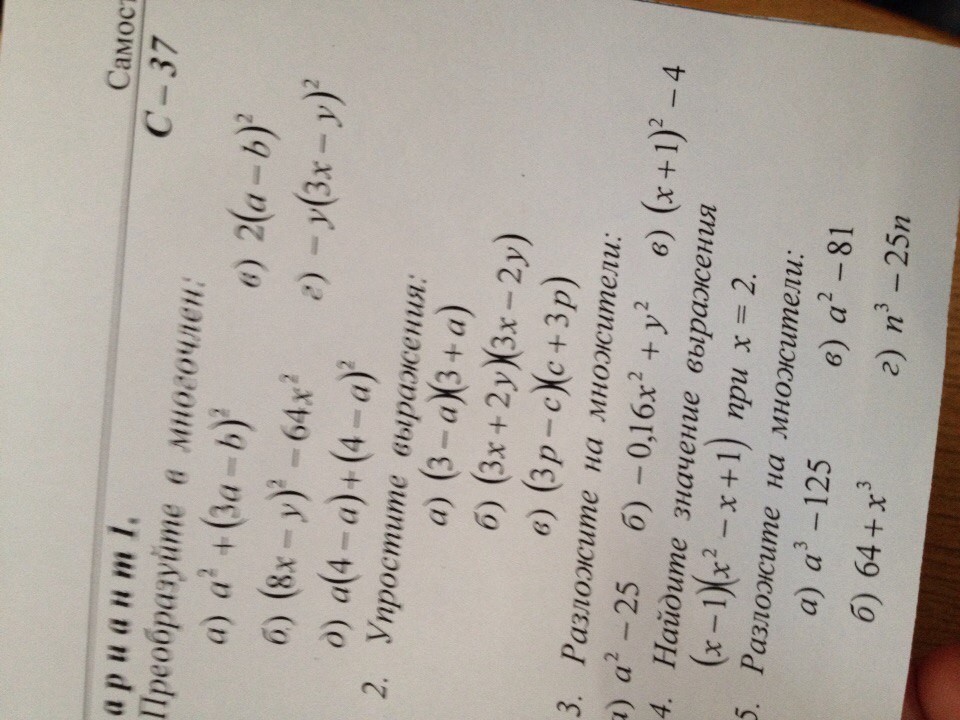 Самост
С – 37
ариант 1.
Преобразуйте в многочлен:
а) a² + (3a – b)² в) 2(a – b)²
б) (8x – y)² – 64x² г) – y(3x – y)²
д) a(4 – a) + (4 – a)²
2. Упростите выражения:
а) (3 – a)(3 + a)
б) (3x + 2y)(3x – 2y)
в) (3p – c)(c + 3p)
3. Разложите на множители:
а) a² – 25 б) – 0,16x² + y² в) (x + 1)² – 4
4. Найдите значение выражения
(x – 1)(x² – x + 1) при x = 2.
5. Разложите на множители:
а) a³ – 125 в) a² – 81
б) 64 + x³ г) n³ – 25n